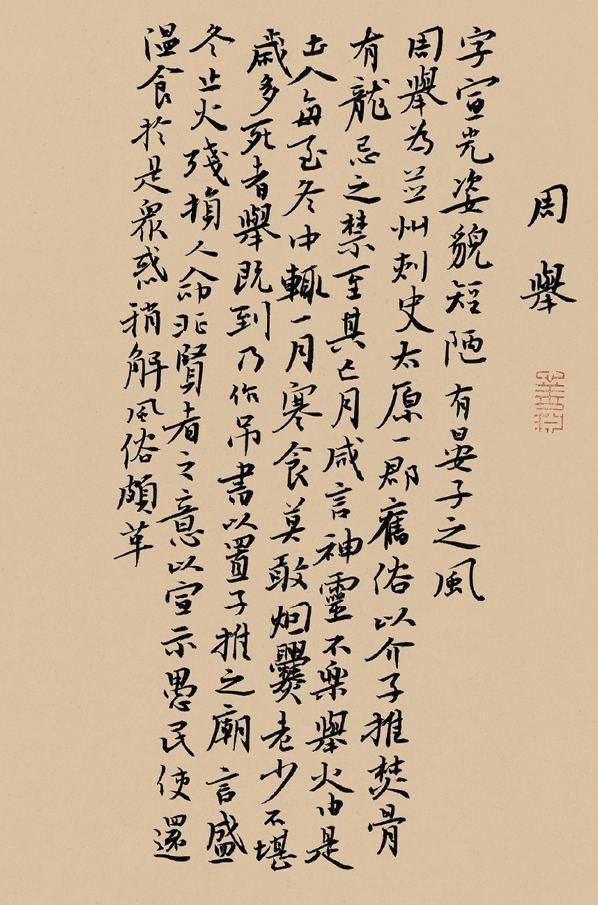 周舉
字宣光姿貌短陋有晏子之風
周舉為並州刺史太原一郡舊俗以介子推焚骨
有龍忌之禁至其亡月咸言神靈不樂舉火由是
士人每至冬中輒一月寒食莫敢烟爨老少不堪
歲多死者舉既到乃作吊書以置子推之廟言盛
冬止火殘損人命非賢者之意以宣示愚民使還
溫食於是衆惑稍解風俗頗革